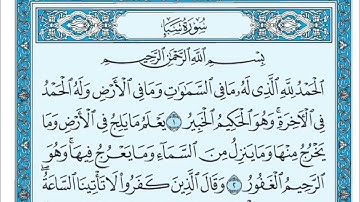 سُورَةُ سَبَإٍ
بِسْمِ ٱللَّهِ ٱلرَّحْمَٰنِ ٱلرَّحِيمِ
ٱلْحَمْدُ لِلَّهِ ٱلَّذِى لَهُۥ مَا فِى ٱلسَّمَٰوَٰتِ وَمَا فِى ٱلْأَرْضِ وَلَهُ ٱلْحَمْدُ
فِى ٱلْأٓخِرَةِ ۚ وَهُوَ ٱلْحَكِيمُ ٱلْخَبِيرُ ١ يَعْلَمُ مَا يَلِجُ فِى ٱلْأَرْضِ وَمَا
يَخْرُجُ مِنْهَا وَمَا يَنزِلُ مِنَ ٱلسَّمَآءِ وَمَا يَعْرُجُ فِيهَا ۚ وَهُوَ
ٱلرَّحِيمُ ٱلْغَفُورُ ٢ وَقَالَ ٱلَّذِينَ كَفَرُوا۟ لَا تَأْتِينَا ٱلسَّاعَةُ ۖ